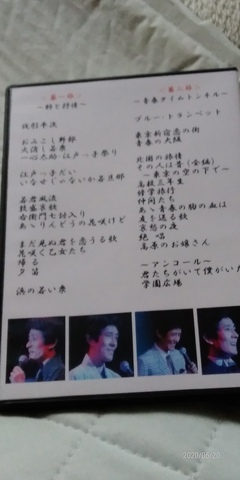 <第一部>
～粋と抒情～
銭形平次
おみこし野郎
火消し若衆
一心太助 江戸っ子祭り
江戸っ子だい
いなせじゃないか若旦那
若君風流
鼓盛衰歌
右衛門七討入り
あゝりんどうの花咲けど
まだ見ぬ君を恋うる歌
花咲く乙女たち
帰る
夕笛
浜の若い衆
<第二部>
～青春タイムトンネル～
ブルー・トランペット
東京新宿恋の街
青春の大阪
北国の旅情
その人は昔(全編)
～東京の空の下で～
高校三年生
修学旅行
仲間たち
あゝ青春の胸の血は
友を送る歌
哀愁の夜
絶唱
高原のお嬢さん
～アンコール～
君たちがいて僕がいた
学園広場
2020/06/20